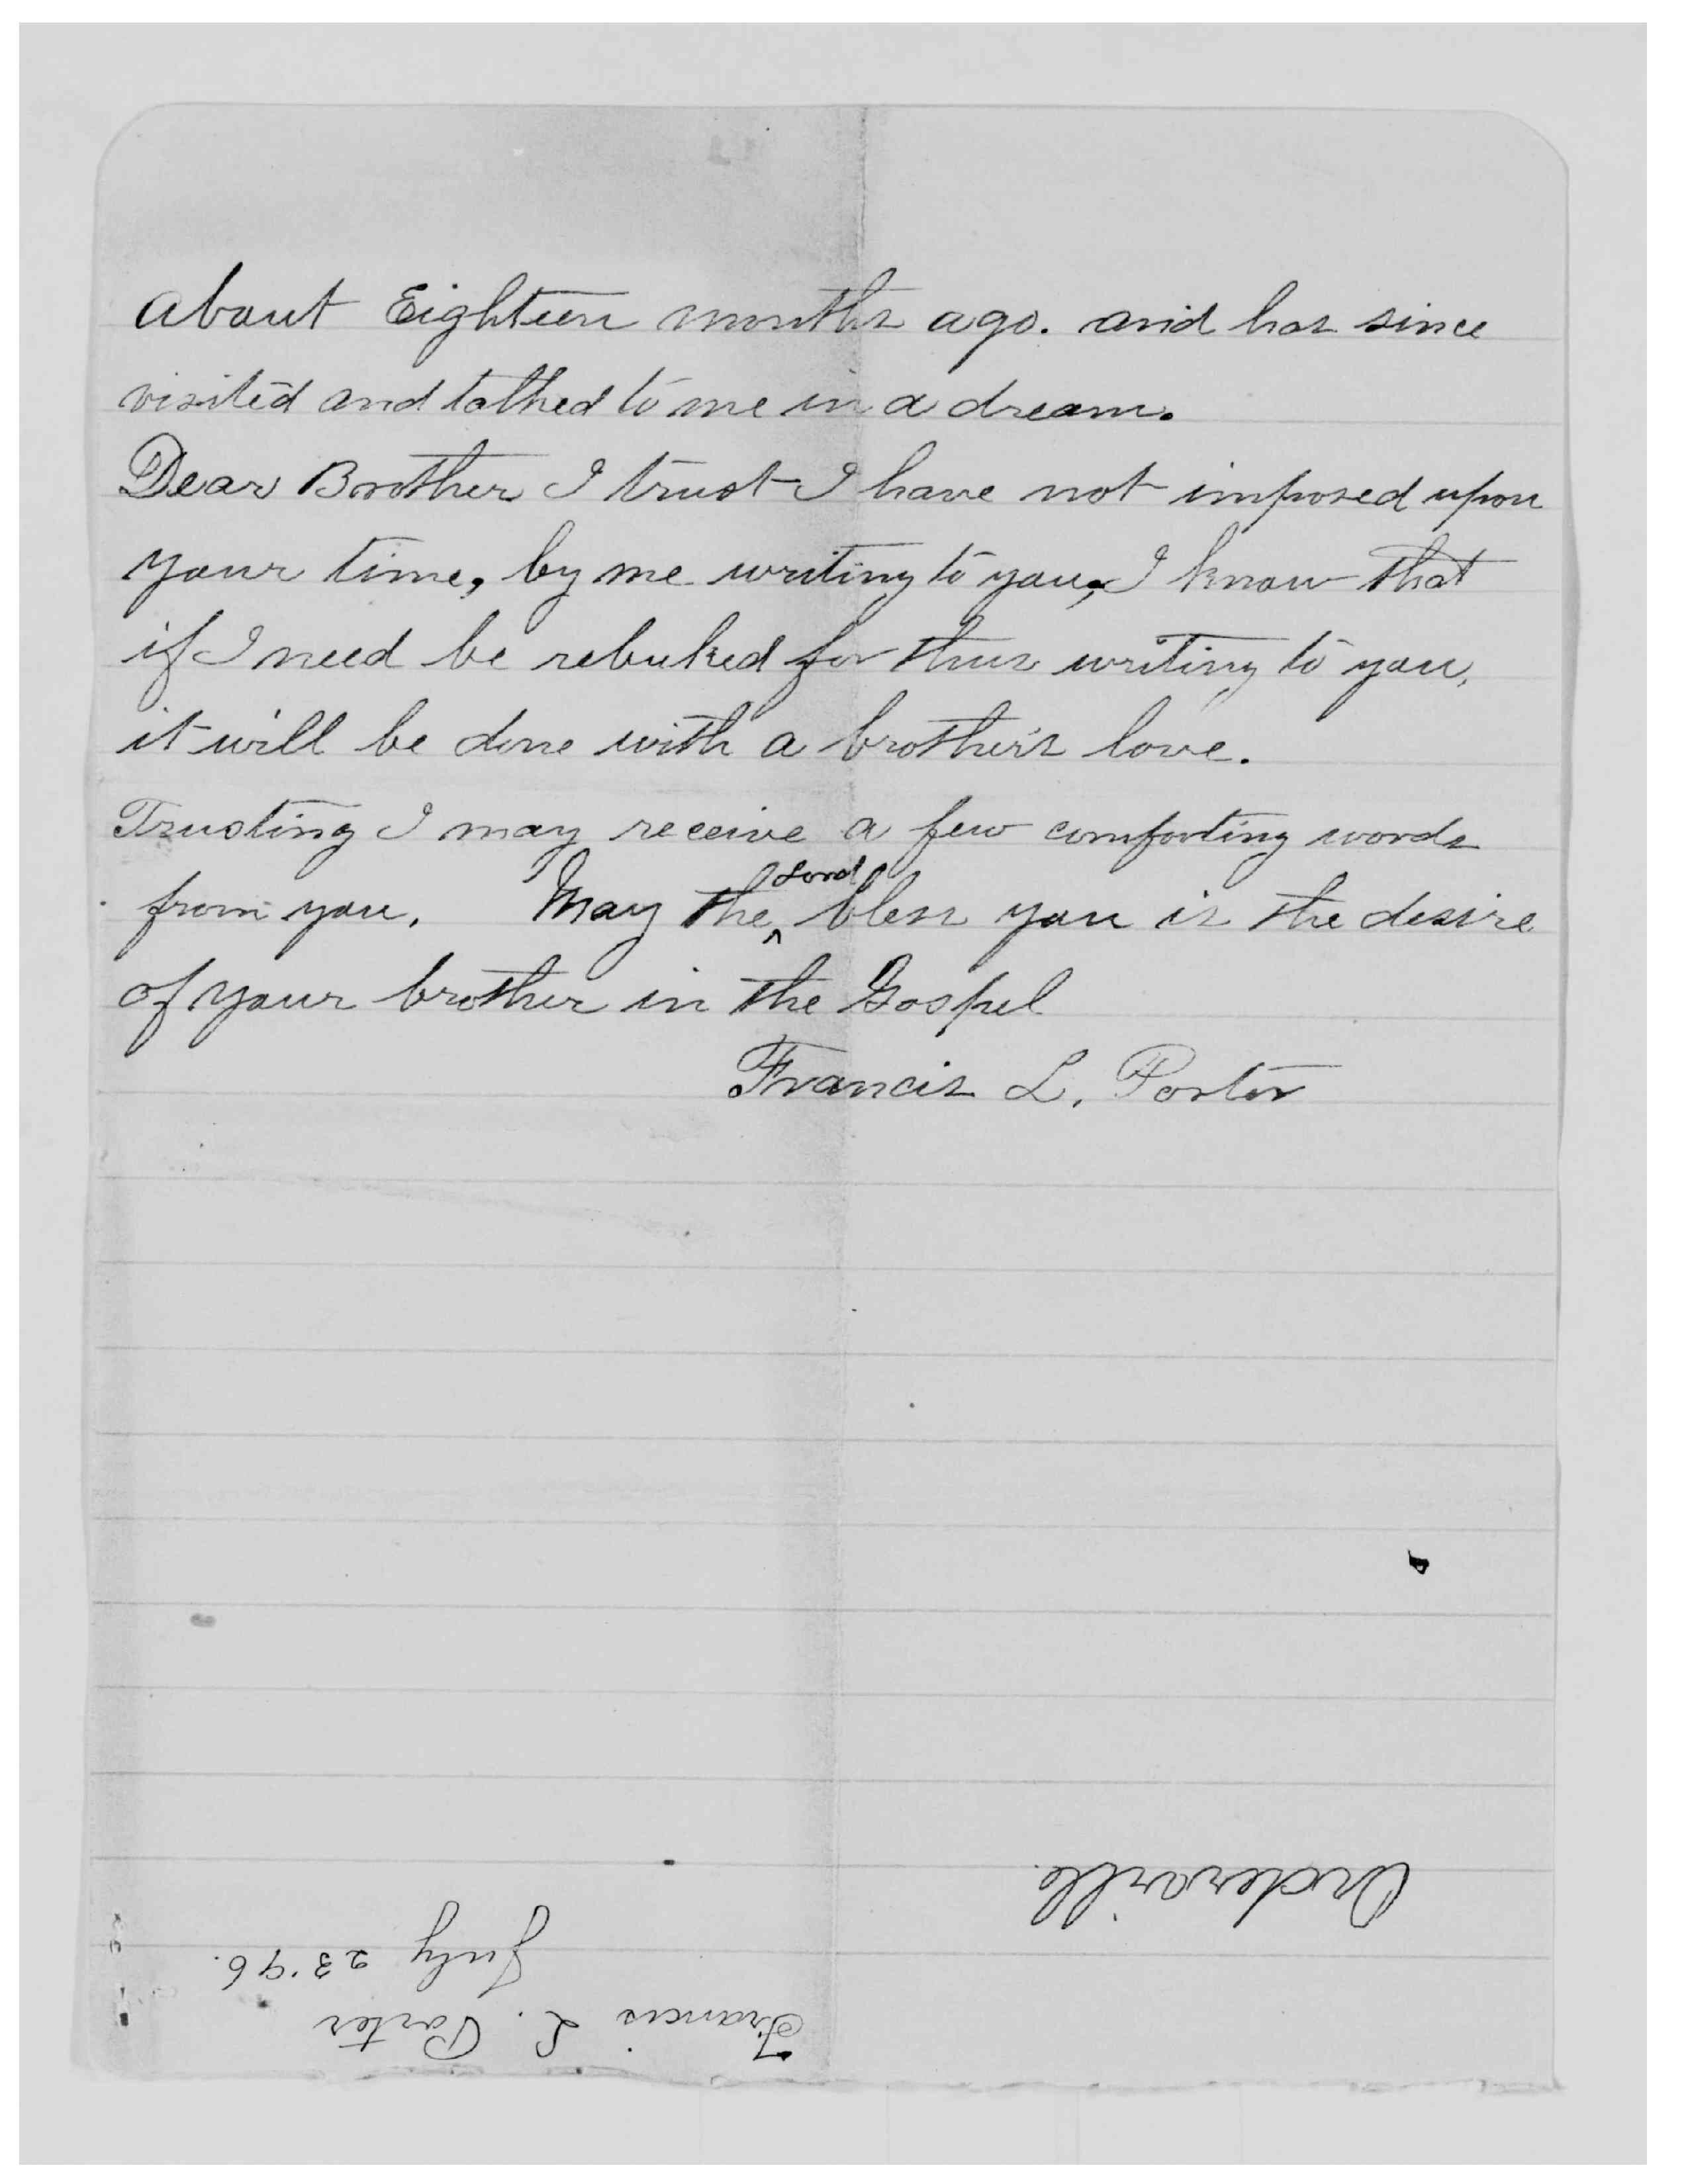 about Eighteen months ago. and has since
visited and talked to me in a dream.
Dear Brother I trust I have not imposed upon
your time, by me writing to you, I know that
if I need be rebuked for thus writing to you,
it will be done with a brother's love.
Trusting I may receive a few comforting words
from you. May the Lord bless you is the desire
of your brother in the Gospel
Francis L. Porter
Francis L. Porter
July 23 '96.